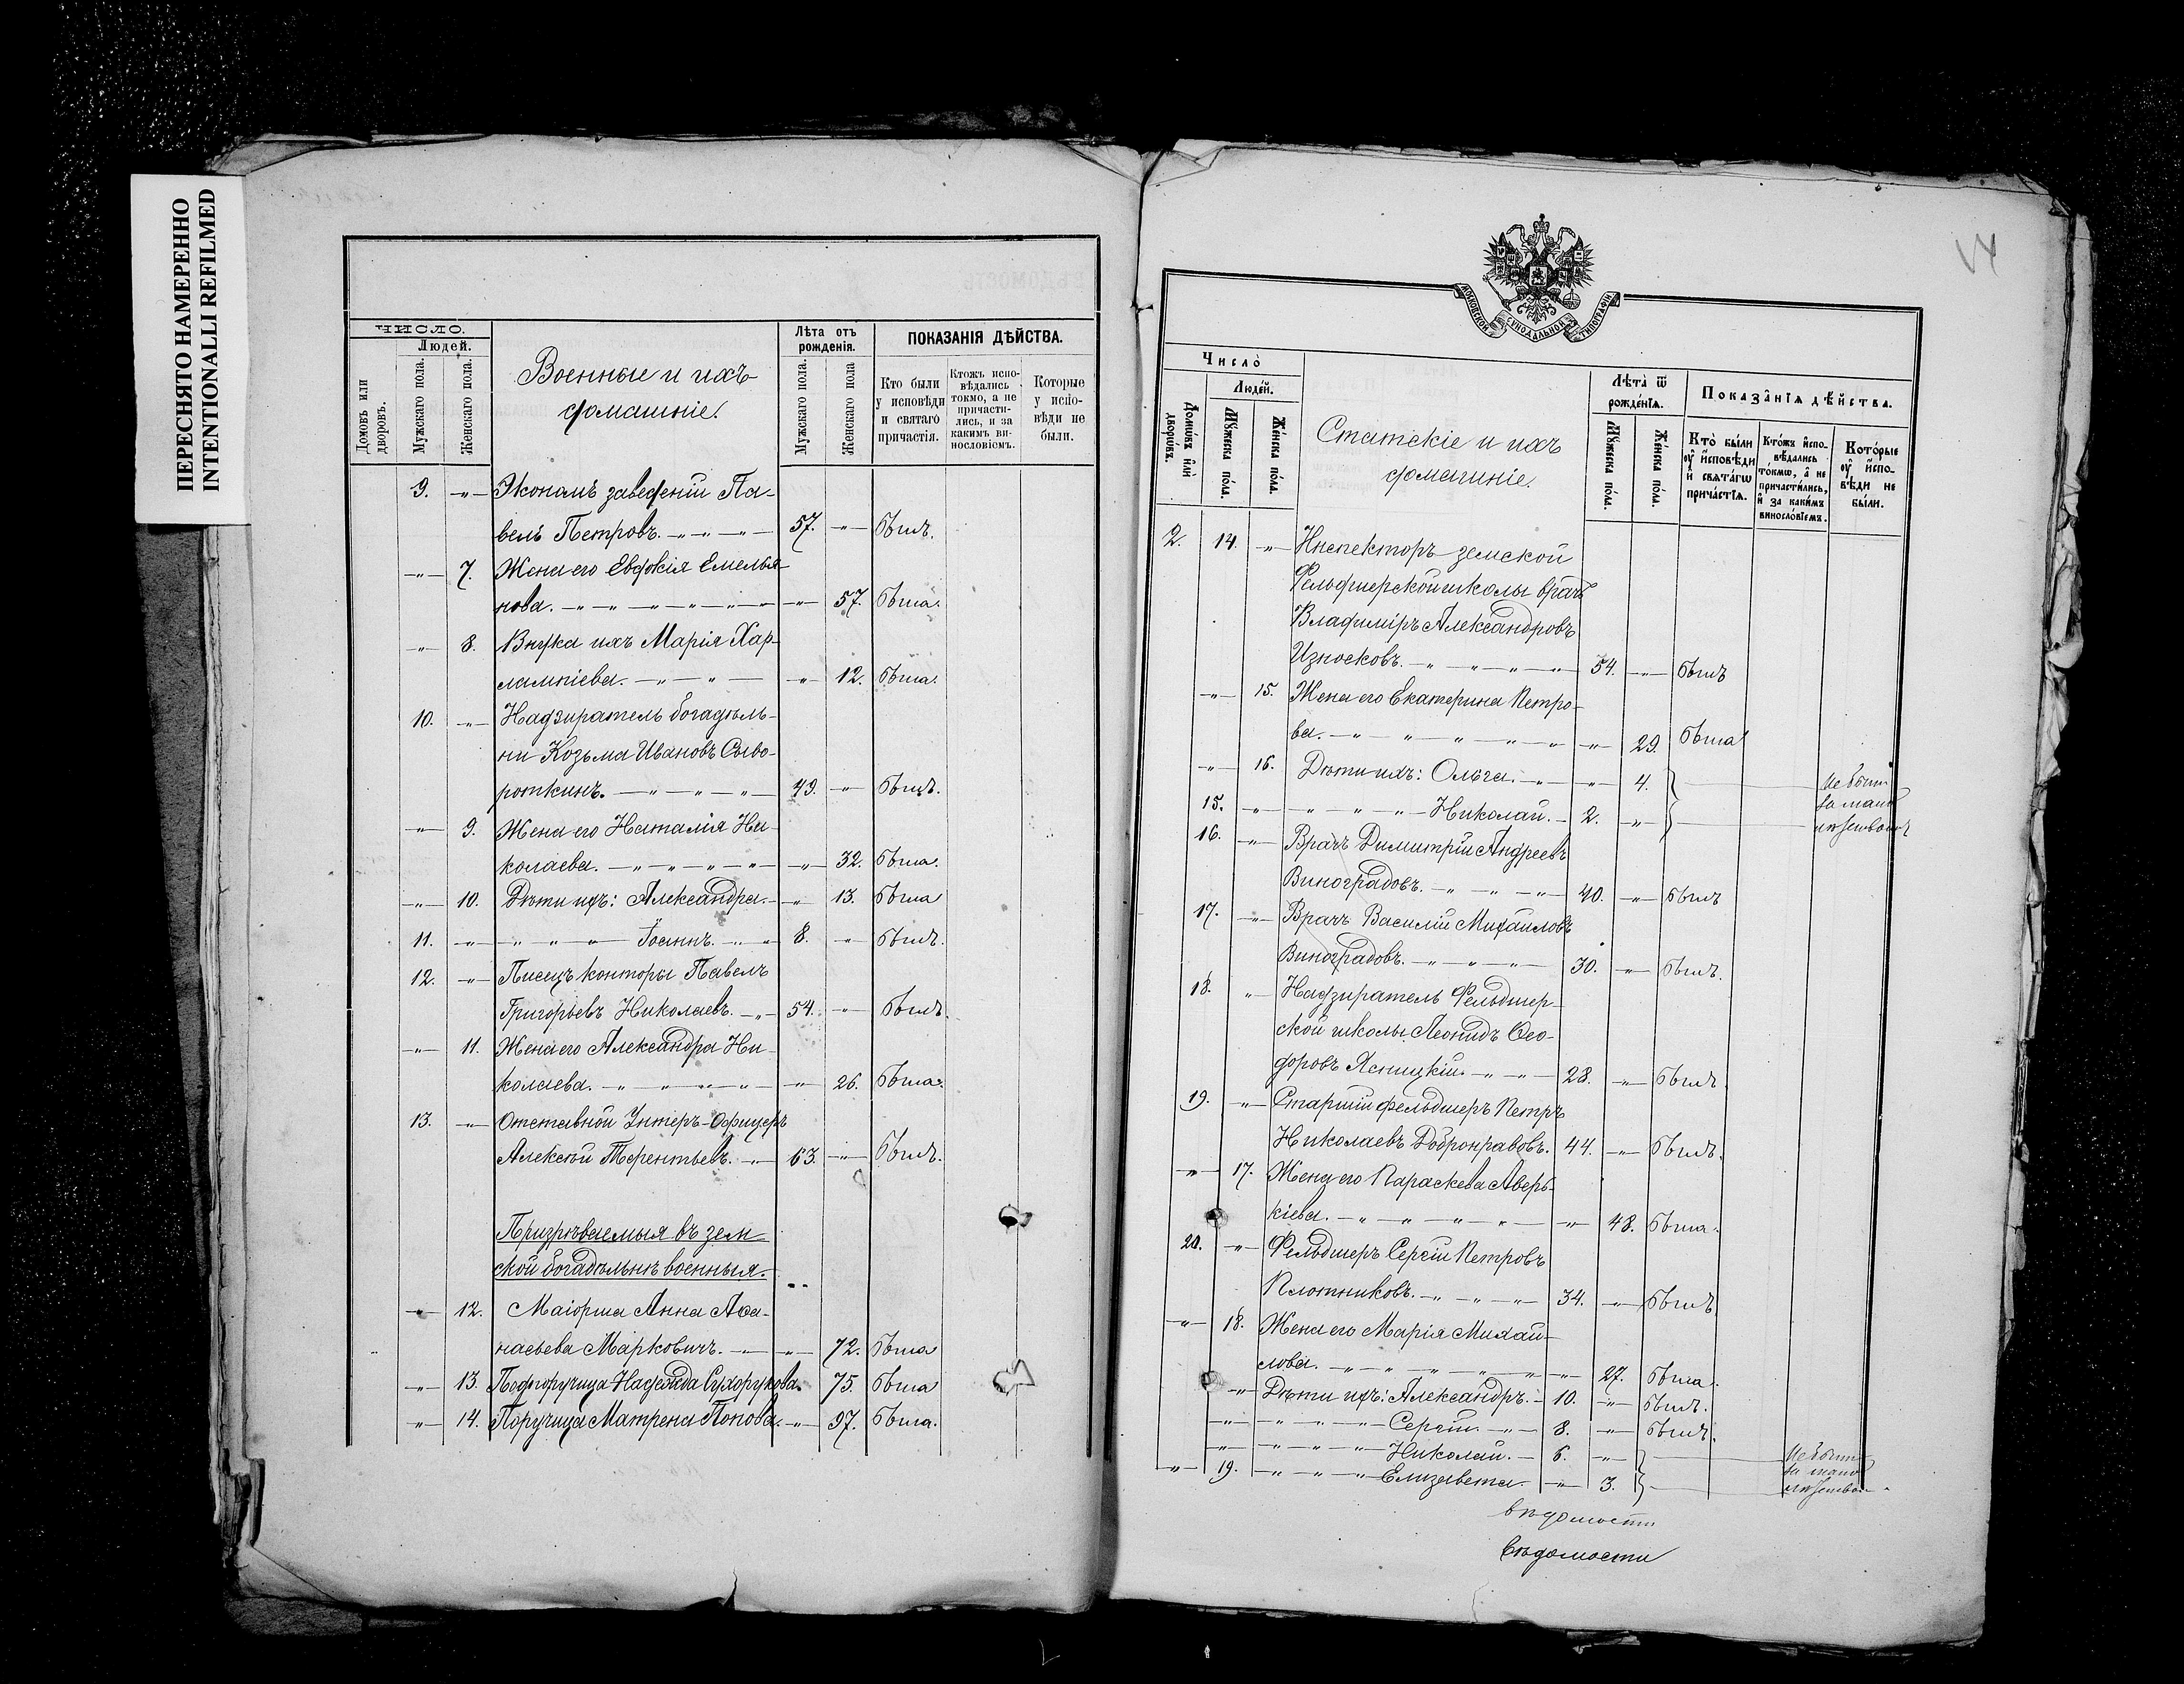 ПЕРЕСНЯТО НАМЕРЕННО
INTENTIONALLI REFILMED
ЧИСЛО.
Людей.
Домовъ или дворовъ.
Мужскаго пола.
Женскаго пола.
Военные и ихъ
домашніе.
Лѣта отъ рожденія.
Мужскаго пола.
Женскаго пола
ПОКАЗАНІЯ ДѢЙСТВА.
Кто были у исповѣди и святаго причастія.
Ктожъ исповѣдались токмо, а не причастились, и за какимъ винословіемъ.
Которые у исповѣди не были.
9. -„- Экономъ заведеній Па-
велъ Петровъ. -„-„-„- 57. -„- былъ.
-„- 7. Жена его Евдокія Емелья-
нова. -„-„-„-„-„- -„- 57. была.
-„- 8. Внука ихъ Марія Хар-
лампіева. -„-„- -„- 12. была.
10. -„- Надзиратель богадѣль-
ни Козьма Ивановъ Сыво-
роткинъ. -„-„-„- 49. -„- былъ.
-„- 9. Жена его Наталія Ни-
колаева. -„-„-„-„- -„- 32. была.
-„- 10. Дѣти ихъ: Александра. -„- 13. была
11. -„- -„-„-„- Іоаннъ. -„-„ 8. -„- былъ.
12. -„- Писецъ конторы Павелъ
Григорьевъ Николаевъ. -„- 54. -„- былъ.
-„- 11. Жена его Александра Ни-
колаева. -„-„-„-„- -„- 26. была.
13. -„- Отставной Унтеръ-Офицеръ
Алексѣй Терентьевъ. -„- 63. -„- былъ.
Призрѣваемыя въ зем
ской богадѣльнѣ военныя.
-„- 12. Маіорша Анна Аѳа-
насьева Марковичъ. -„- -„- 72. была
-„- 13. Подпоручица Надежда Сухорукова. 75. была
-„- 14. Поручица Матрена Попова. -„- 97. была.
МОСКОВСКОЙ СУНОДАЛЬНОЙ ТИПОГРАФІИ
Число̀
Людей.
Домѡвъ и҆лѝ дворѡвъ.
Мꙋжеска по́ла.
Же́нска по́ла.
Статскіе и ихъ
домашніе.
Лѣта̀ ѿ рожде́нїѧ.
Мꙋжеска по́ла.
Же́нска по́ла.
Показа̑нїѧ дѣ́йства.
Кто̀ бы́ли ᲂу҆ и҆сповѣди и҆ свѧта́гѡ прича́стїѧ.
Кто́жъ и҆сповѣдались то́кмѡ, а҆ не причасти́лись, и҆ за каки́мъ винословїемъ.
Кото́рые ᲂу҆ и҆сповѣди не бы́ли.
2. 14. -„- Инспекторъ земской
Фельдшерской школы врачъ
Владиміръ Александровъ
Износковъ. -„-„-„-„- 54. -„- былъ
-„- 15. Жена его Екатерина Петро-
ва. -„-„-„-„-„ -„- 29. была
-„- 16. Дѣти ихъ: Ольга. -„- -„- 4. не были
15. -„- -„-„-„- Николай. - 2. -„- за мало
лѣтствомъ
16. -„- Врачъ Димитрій Андреевъ
Виноградовъ. -„-„-„- 40. -„- былъ
17. -„- Врачъ Василій Михайловъ
Виноградовъ. -„-„-„- 30. -„- былъ.
18. -„- Надзиратель Фельдшер-
ской школы Леонидъ Ѳео-
доровъ Ясницкій. -„-„- 28. -„- былъ.
19. -„- Старшій фельдшеръ Петръ
Николаевъ Добронравовъ. 44. -„- былъ.
-„- 17. Жена его Параскева Аверь-
кіева. -„-„-„-„- -„- 48. была.
20. -„- Фельдшеръ Сергій Петровъ
Плотниковъ. -„-„-„- 34. -„- былъ
-„- 18. Жена его Марія Михай-
лова. -„-„-„-„-„- -„- 27. была.
-„- Дѣти ихъ: Александръ. - 10. -„- былъ.
-„- -„-„-„- Сергій. -„- 8. -„- былъ.
-„- -„-„-„- Николай. - 6. -„- не были
-„- 19. -„-„-„- Елизавета. -„- 3. за мало
лѣтством
вѣдомости
Вѣдомости